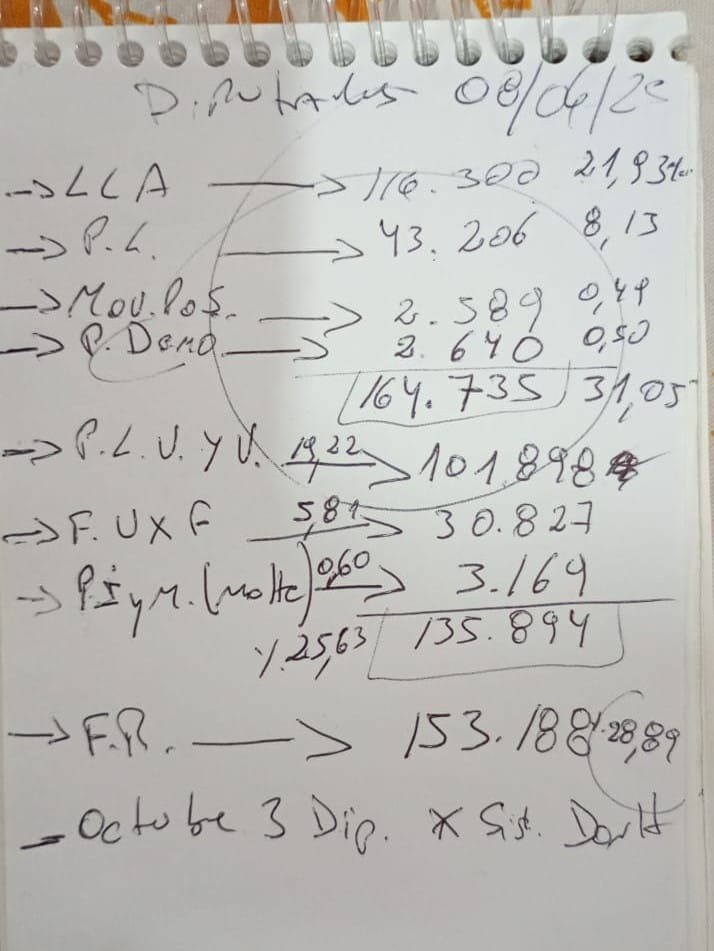 Diputados 08/06/25
→ LLA → 116.300 21,93%
→ P.L. → 43.206 8,13
→ Mov.Pos. → 2.589 0,49
→ P.Demo. → 2.640 0,50
164.735 31,05
→ P.L.V. y V. 19,22 → 101.898
→ F.UxF 5,81 → 30.827
→ P.I y M. (Molte) 0,60 → 3.169
% 25,63 135.894
→ F.R. → 153.188 % 28,89
- Octubre 3 Dip. x Sist. DontH